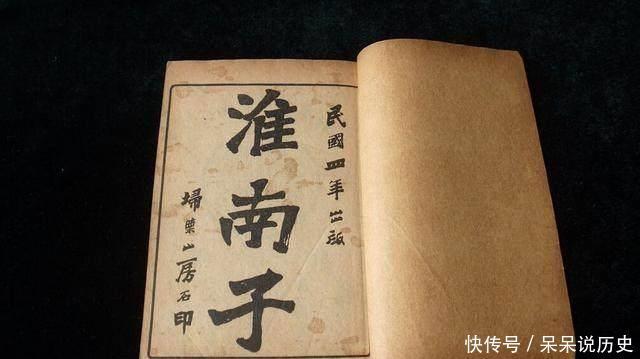 民國四年出版
淮南子
埽葉山房石印
快传号／呆呆说历史